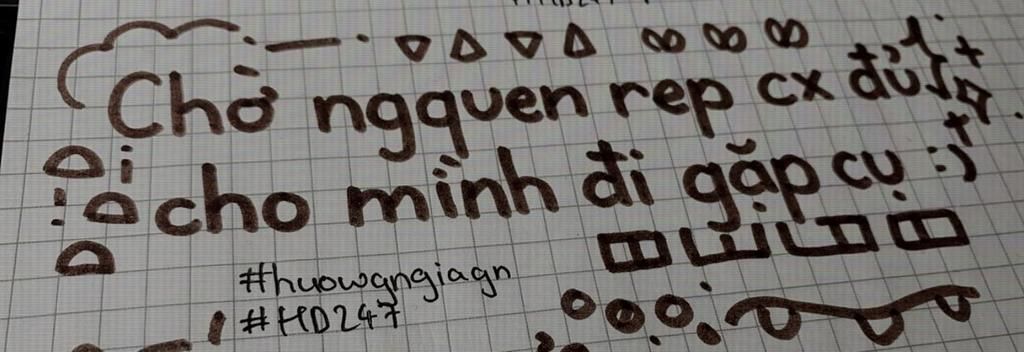 Chờ ngquen rep cx đủ
cho mình đi gặp cụ :)
#huowgngiagn
#HD247